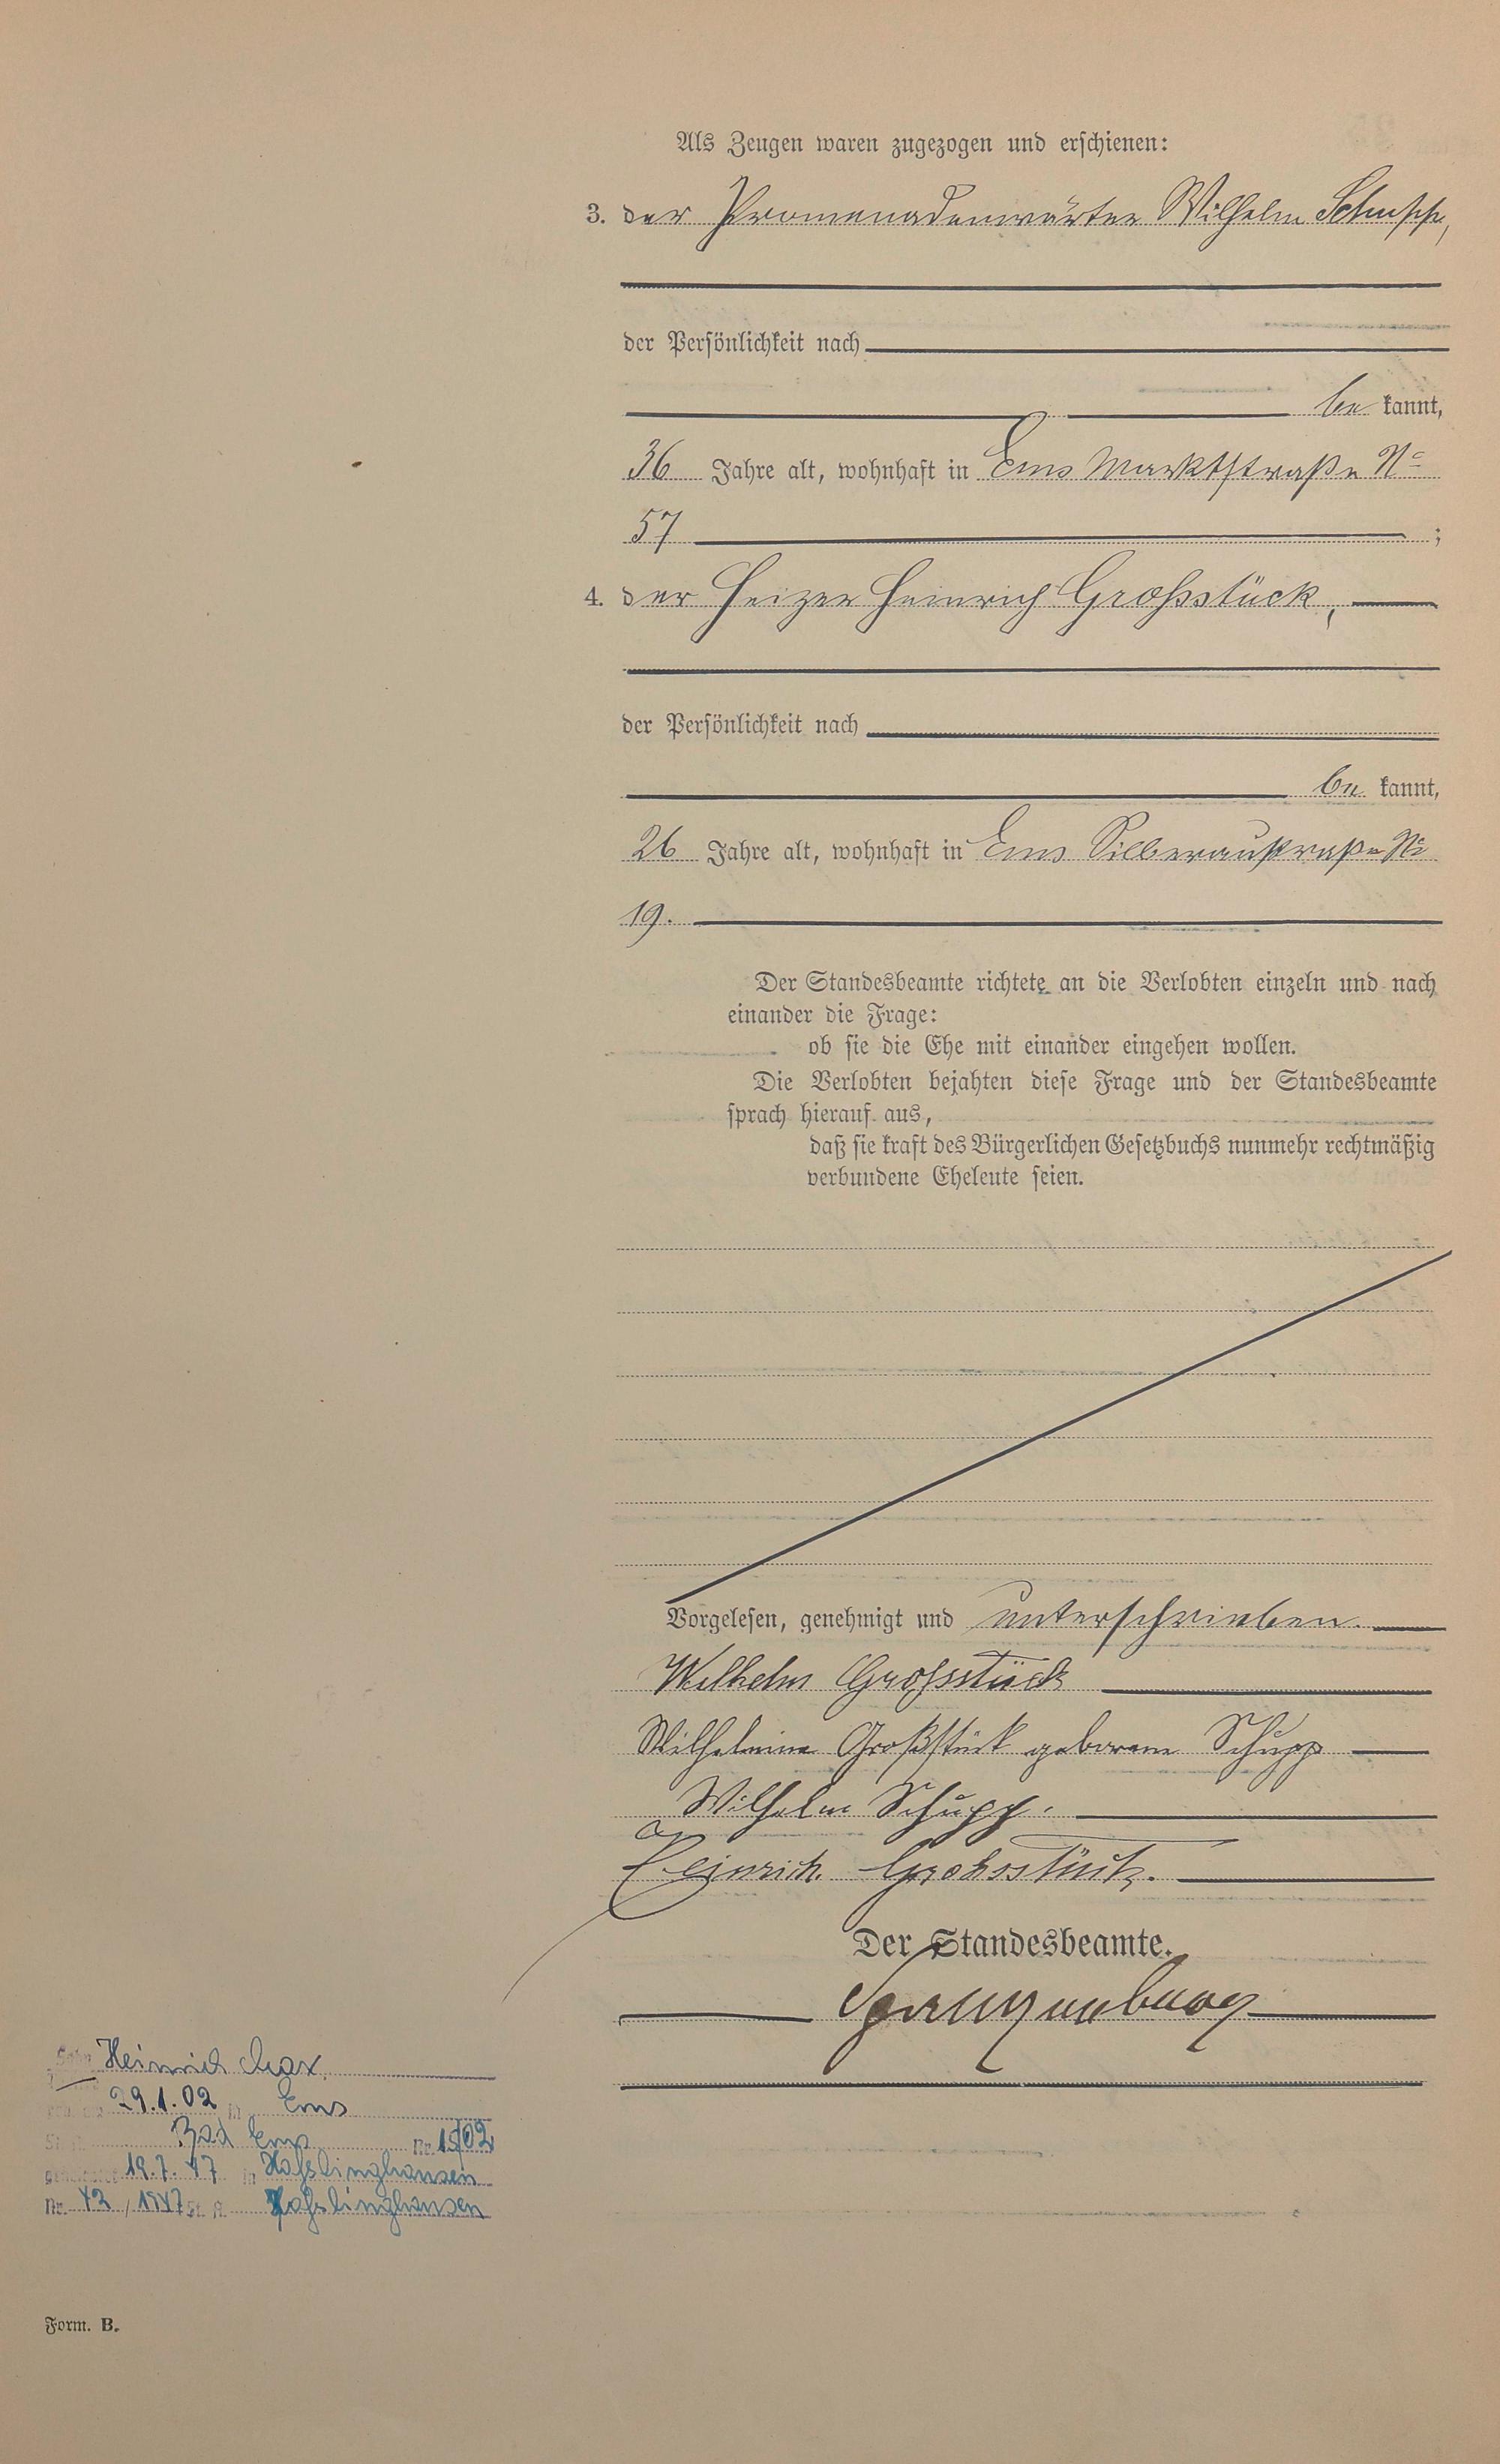 Als Zeugen waren zugezogen und erschienen:
3. der Promenadenwärter Wilhelm Schupp,
der Persönlichkeit nach
be kannt,
36 Jahre alt, wohnhaft in Ems Marktstraße No
57 ;
4. der Heizer Heinrich Großstück,
der Persönlichkeit nach
be kannt,
26 Jahre alt, wohnhaft in Ems Silberaustraße No
19.
Der Standesbeamte richtete an die Verlobten einzeln und nach
einander die Frage:
ob sie die Ehe mit einander eingehen wollen.
Die Verlobten bejahten diese Frage und der Standesbeamte
sprach hierauf aus,
daß sie kraft des Bürgerlichen Gesetzbuchs nunmehr rechtmäßig
verbundene Eheleute seien.
Vorgelesen, genehmigt und unterschrieben.
Wilhelm Grossstück
Wilhelmine Großstück geborene Schupp
Wilhelm Schupp.
Heinrich Grohsstück.
Der Standesbeamte.
Spangenberg
Heinrich Max
29.1.02 in Ems
Bad Ems Nr. 15/02
19.7.47 in Haßlinghausen
Nr. 42/1947 St. A. Haßlinghausen
Form. B.